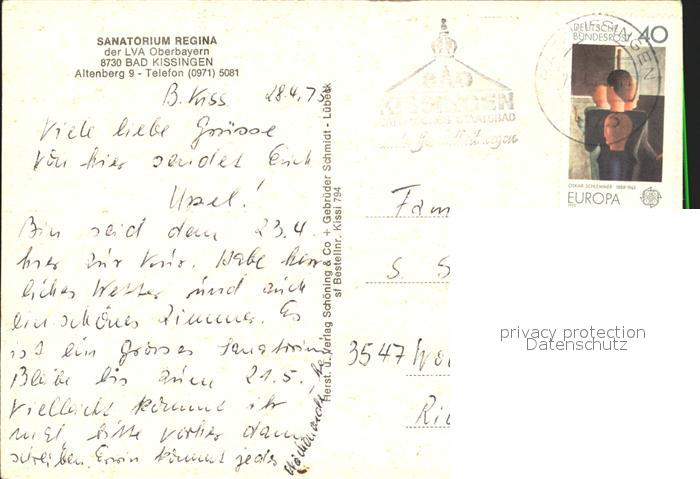 SANATORIUM REGINA
der LVA Oberbayern
8730 BAD KISSINGEN
Altenberg 9 - Telefon (0971) 5081
B. Kiss 28.4.75
Viele liebe Grüsse
von hier sendet Euch
Ursel!
Bin seid dem 23.4.
hier zur Kur. Habe herr
liches Wetter und auch
ein schönes Zimmer. Es
ist ein grosses Sanatorium
Bleibe bis zum 21.5.
Vielleicht kommt ihr
mal, bitte vorher dann
schreiben. Erwin kommt jedes
Wochenende
Herst. u. Verlag Schöning & Co + Gebrüder Schmidt - Lübeck
sf Bestellnr. Kissi 794
BAD
KISSINGEN
BAD KISSINGEN
DEUTSCHE
BUNDESPOST 40
OSKAR SCHLEMMER 1888-1943
EUROPA
Fam
S. S
3547 Wo
privacy protection
Datenschutz